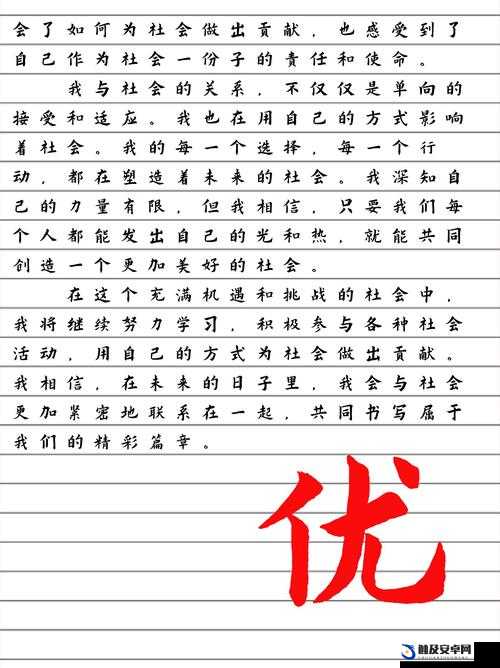 会了如何为社会做出贡献，也感受到了
自己作为社会一份子的责任和使命。
我与社会的关系，不仅仅是单向的
接受和适应。我也在用自己的方式影响
着社会。我的每一个选择，每一个行
动，都在塑造着未来的社会。我深知自
己的力量有限，但我相信，只要我们每
个人都能发出自己的光和热，就能共同
创造一个更加美好的社会。
在这个充满机遇和挑战的社会中，
我将继续努力学习，积极参与各种社会
活动，用自己的方式为社会做出贡献。
我相信，在未来的日子里，我会与社会
更加紧密地联系在一起，共同书写属于
我们的精彩篇章。
优
普及安卓网